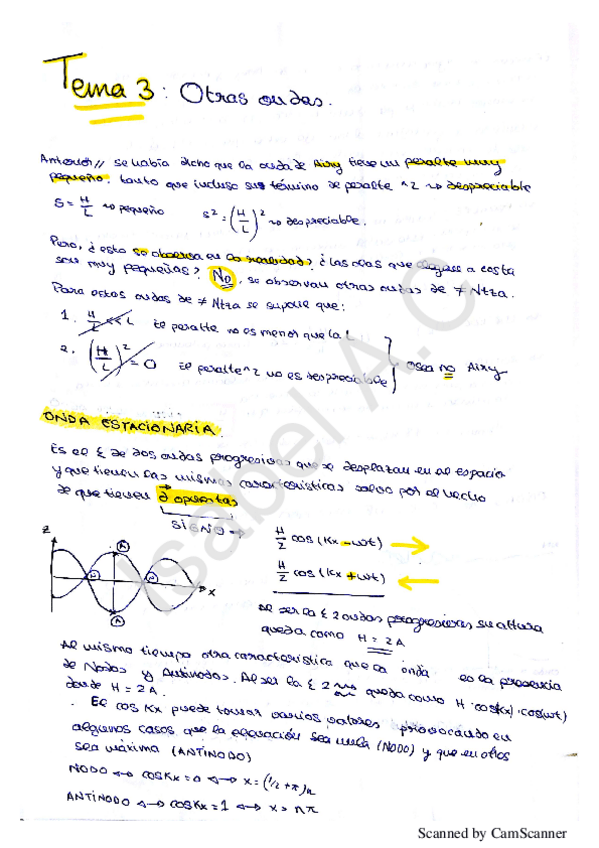 Tema 3: Otras ondas.
Anterior// se había dicho que la onda de Airy tiene un peralte muy
pequeño, tanto que incluso su término de peralte ^2 es despreciable
S = H/L → pequeño S² = (H/L)² → despreciable.
Pero, ¿esto se observa en la realidad? ¿Las olas que llegan a costa
son muy pequeñas? No, se observan otras ondas de ≠ Ntza.
Para estas ondas de ≠ Ntza se supone que:
1. H/L << L El peralte no es menor que la L
2. (H/L)² = 0 El peralte^2 no es despreciable
osea no Airy
ONDA ESTACIONARIA
Es el Σ de dos ondas progresivas que se desplazan en el espacio
y que tienen las mismas características salvo por el hecho
de que tienen opuestas
SIGNO →
H/2 cos(Kx - wt) →
H/2 cos(Kx + wt) ←
Z
A
N
N
A
x
Al ser la Σ 2 ondas progresivas su altura
queda como H = 2A
Al mismo tiempo otra característica que la onda es la presencia
de Nodos y Antinodos. Al ser la Σ 2 queda como H·cos(Kx)·cos(wt)
donde H = 2A.
. El cos Kx puede tomar varios valores provocando en
algunos casos que la ecuación sea nula (NODO) y que en otros
sea máxima (ANTINODO)
NODO ↔ cos Kx = 0 ↔ x = (1/2 + π)n
ANTINODO ↔ cos Kx = 1 ↔ x = nπ
Isabel A.C
Scanned by CamScanner